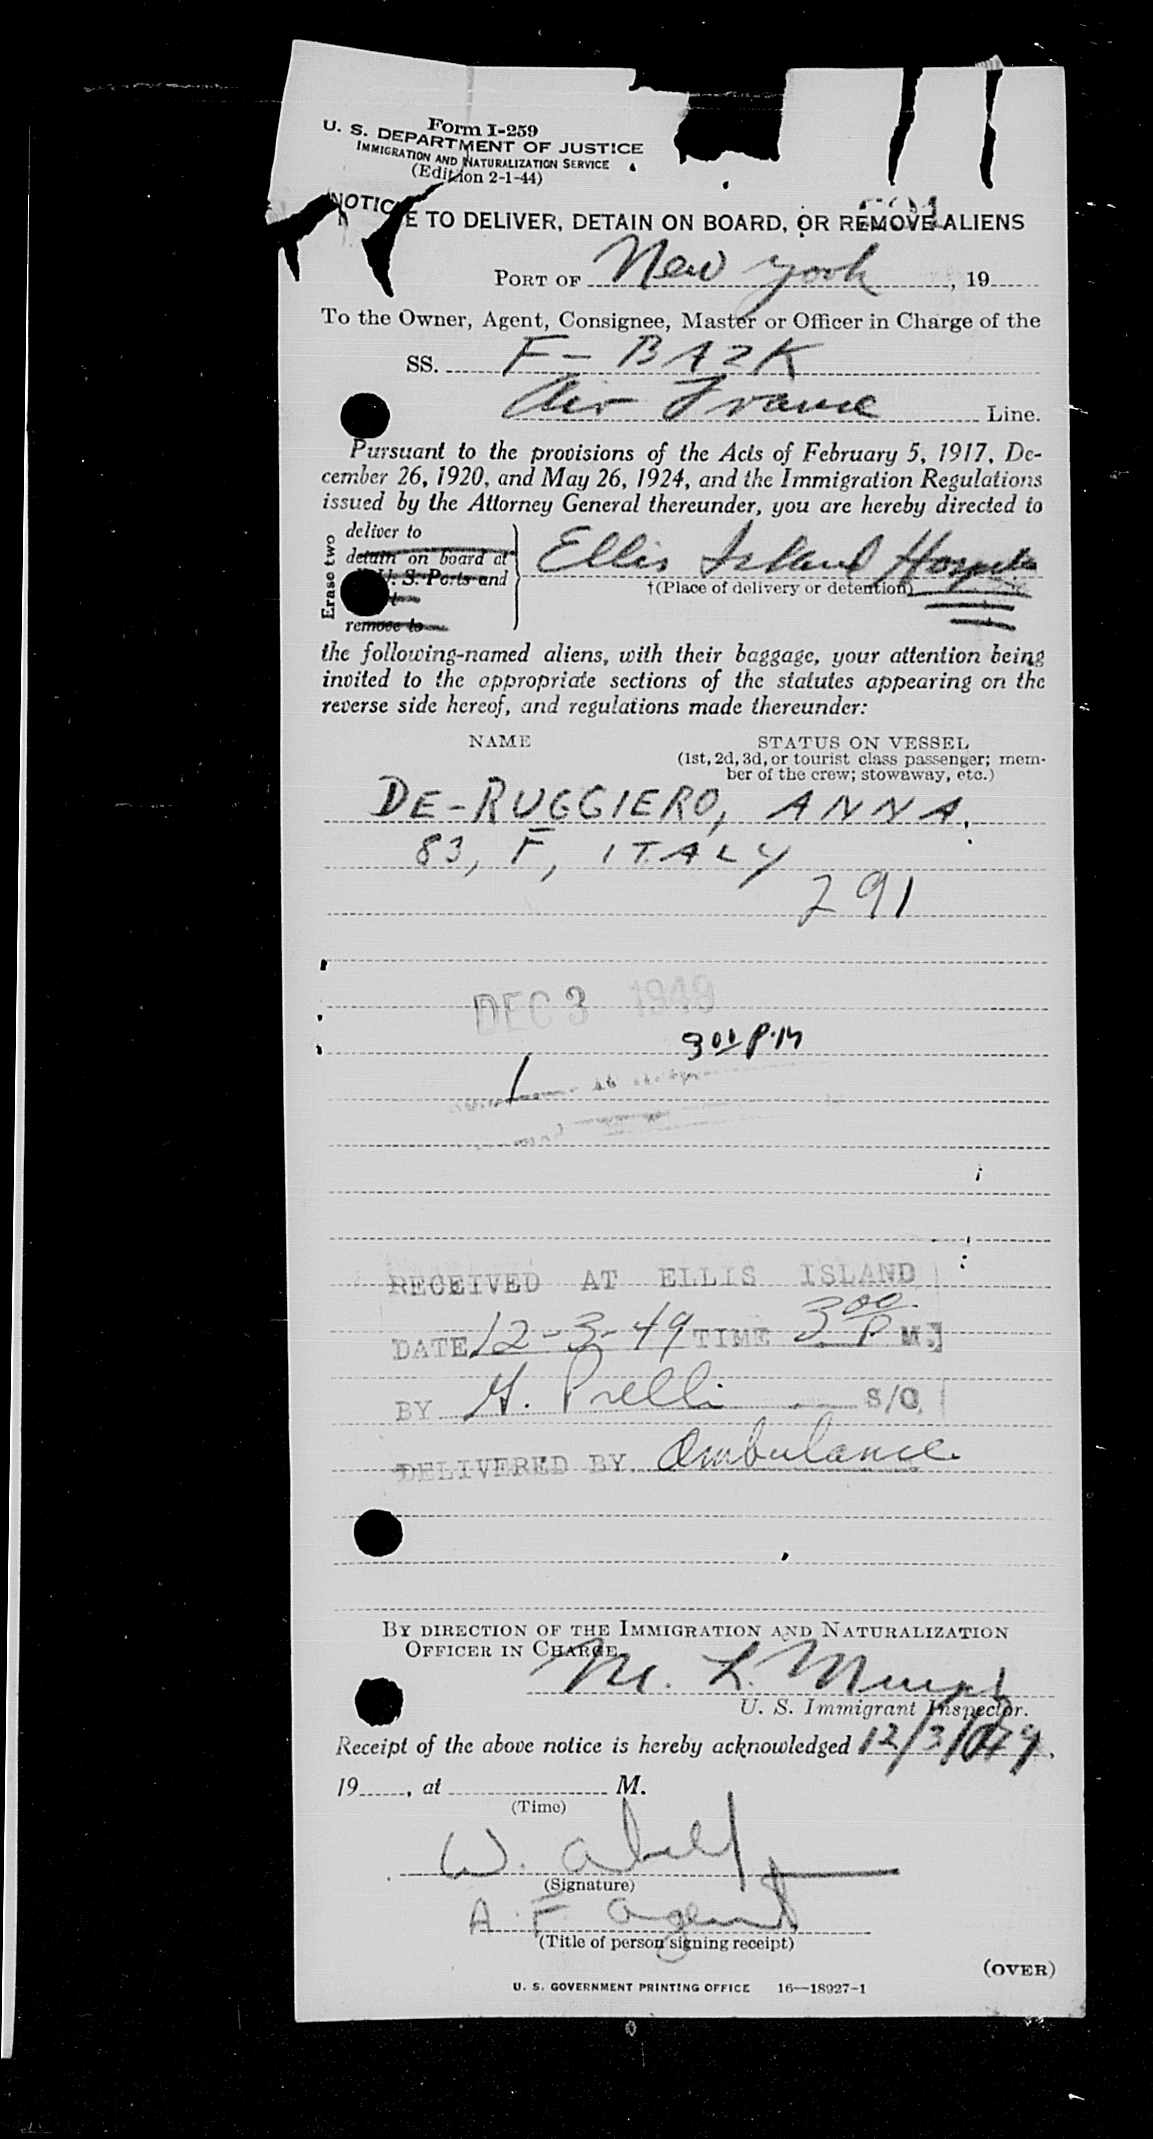 Form I-259
U. S. DEPARTMENT OF JUSTICE
IMMIGRATION AND NATURALIZATION SERVICE
(Edition 2-1-44)
NOTICE TO DELIVER, DETAIN ON BOARD, OR REMOVE ALIENS
PORT OF New York, 19
To the Owner, Agent, Consignee, Master or Officer in Charge of the
SS. F-BAZK
Air France Line.
Pursuant to the provisions of the Acts of February 5, 1917, De-
cember 26, 1920, and May 26, 1924, and the Immigration Regulations
issued by the Attorney General thereunder, you are hereby directed to
Erase two
deliver to
detain on board at
U. S. Ports and
remove to
Ellis Island Hospital
†(Place of delivery or detention)
the following-named aliens, with their baggage, your attention being
invited to the appropriate sections of the statutes appearing on the
reverse side hereof, and regulations made thereunder:
NAME STATUS ON VESSEL
(1st, 2d, 3d, or tourist class passenger; mem-
ber of the crew; stowaway, etc.)
DE-RUGGIERO, ANNA.
83, F, ITALY
291
DEC 3 1949
300 P.M
RECEIVED AT ELLIS ISLAND
DATE 12-3-49 TIME 3 00 P M.
BY G. Prelli S/O
DELIVERED BY Ambulance
BY DIRECTION OF THE IMMIGRATION AND NATURALIZATION
OFFICER IN CHARGE.
M. L. Murphy
U. S. Immigrant Inspector.
Receipt of the above notice is hereby acknowledged 12/3/49,
19, at M.
(Time)
W.
(Signature)
A.F. agent
(Title of person signing receipt)
(OVER)
U. S. GOVERNMENT PRINTING OFFICE 16—18927-1